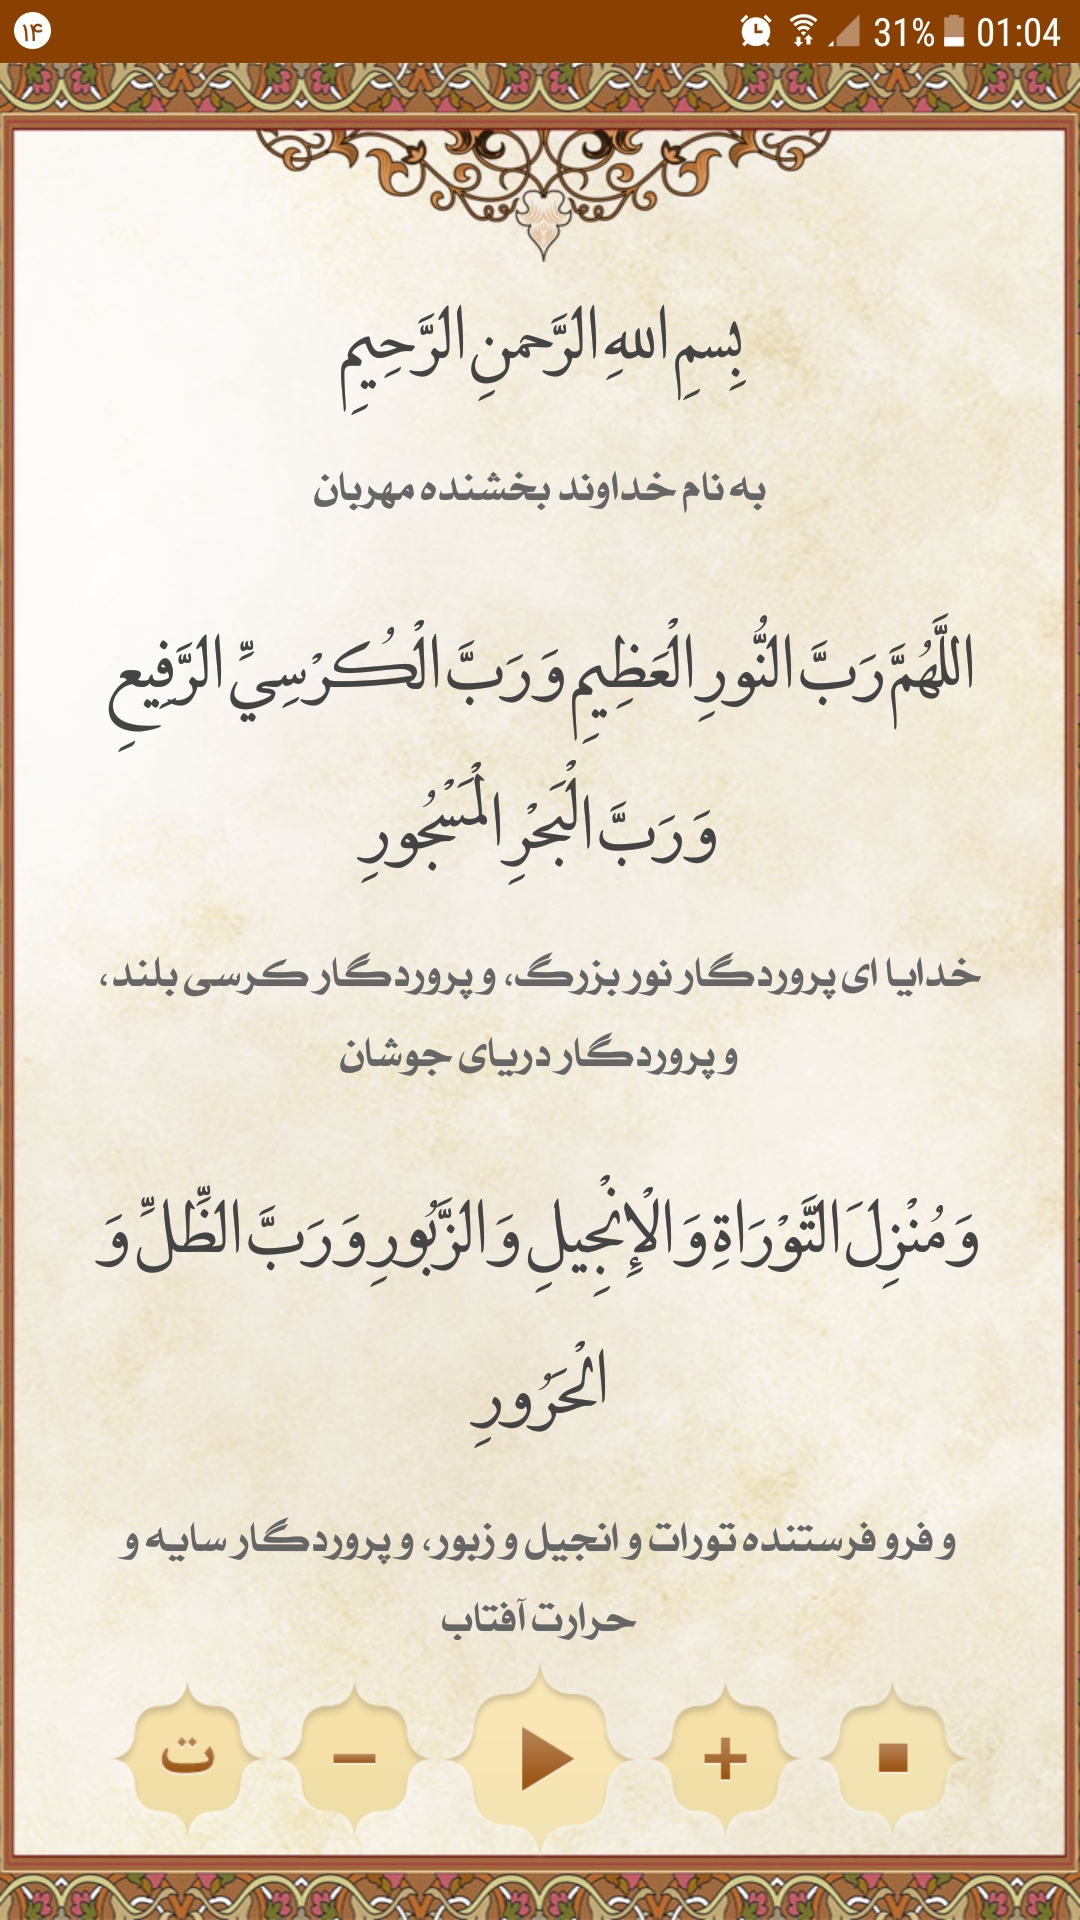 ۱۴ 31% 01:04
بِسمِ اللهِ الرَّحمنِ الرَّحِيمِ
به نام خداوند بخشنده مهربان
اللَّهُمَّ رَبَّ النُّورِ الْعَظِيمِ وَ رَبَّ الْكُرْسِيِّ الرَّفِيعِ
وَ رَبَّ الْبَحْرِ الْمَسْجُورِ
خدایا ای پروردگار نور بزرگ، و پروردگار کرسی بلند،
و پروردگار دریای جوشان
وَ مُنْزِلَ التَّوْرَاةِ وَ الْإِنْجِيلِ وَ الزَّبُورِ وَ رَبَّ الظِّلِّ وَ
الْحَرُورِ
و فرو فرستنده تورات و انجیل و زبور، و پروردگار سایه و
حرارت آفتاب
ت − +